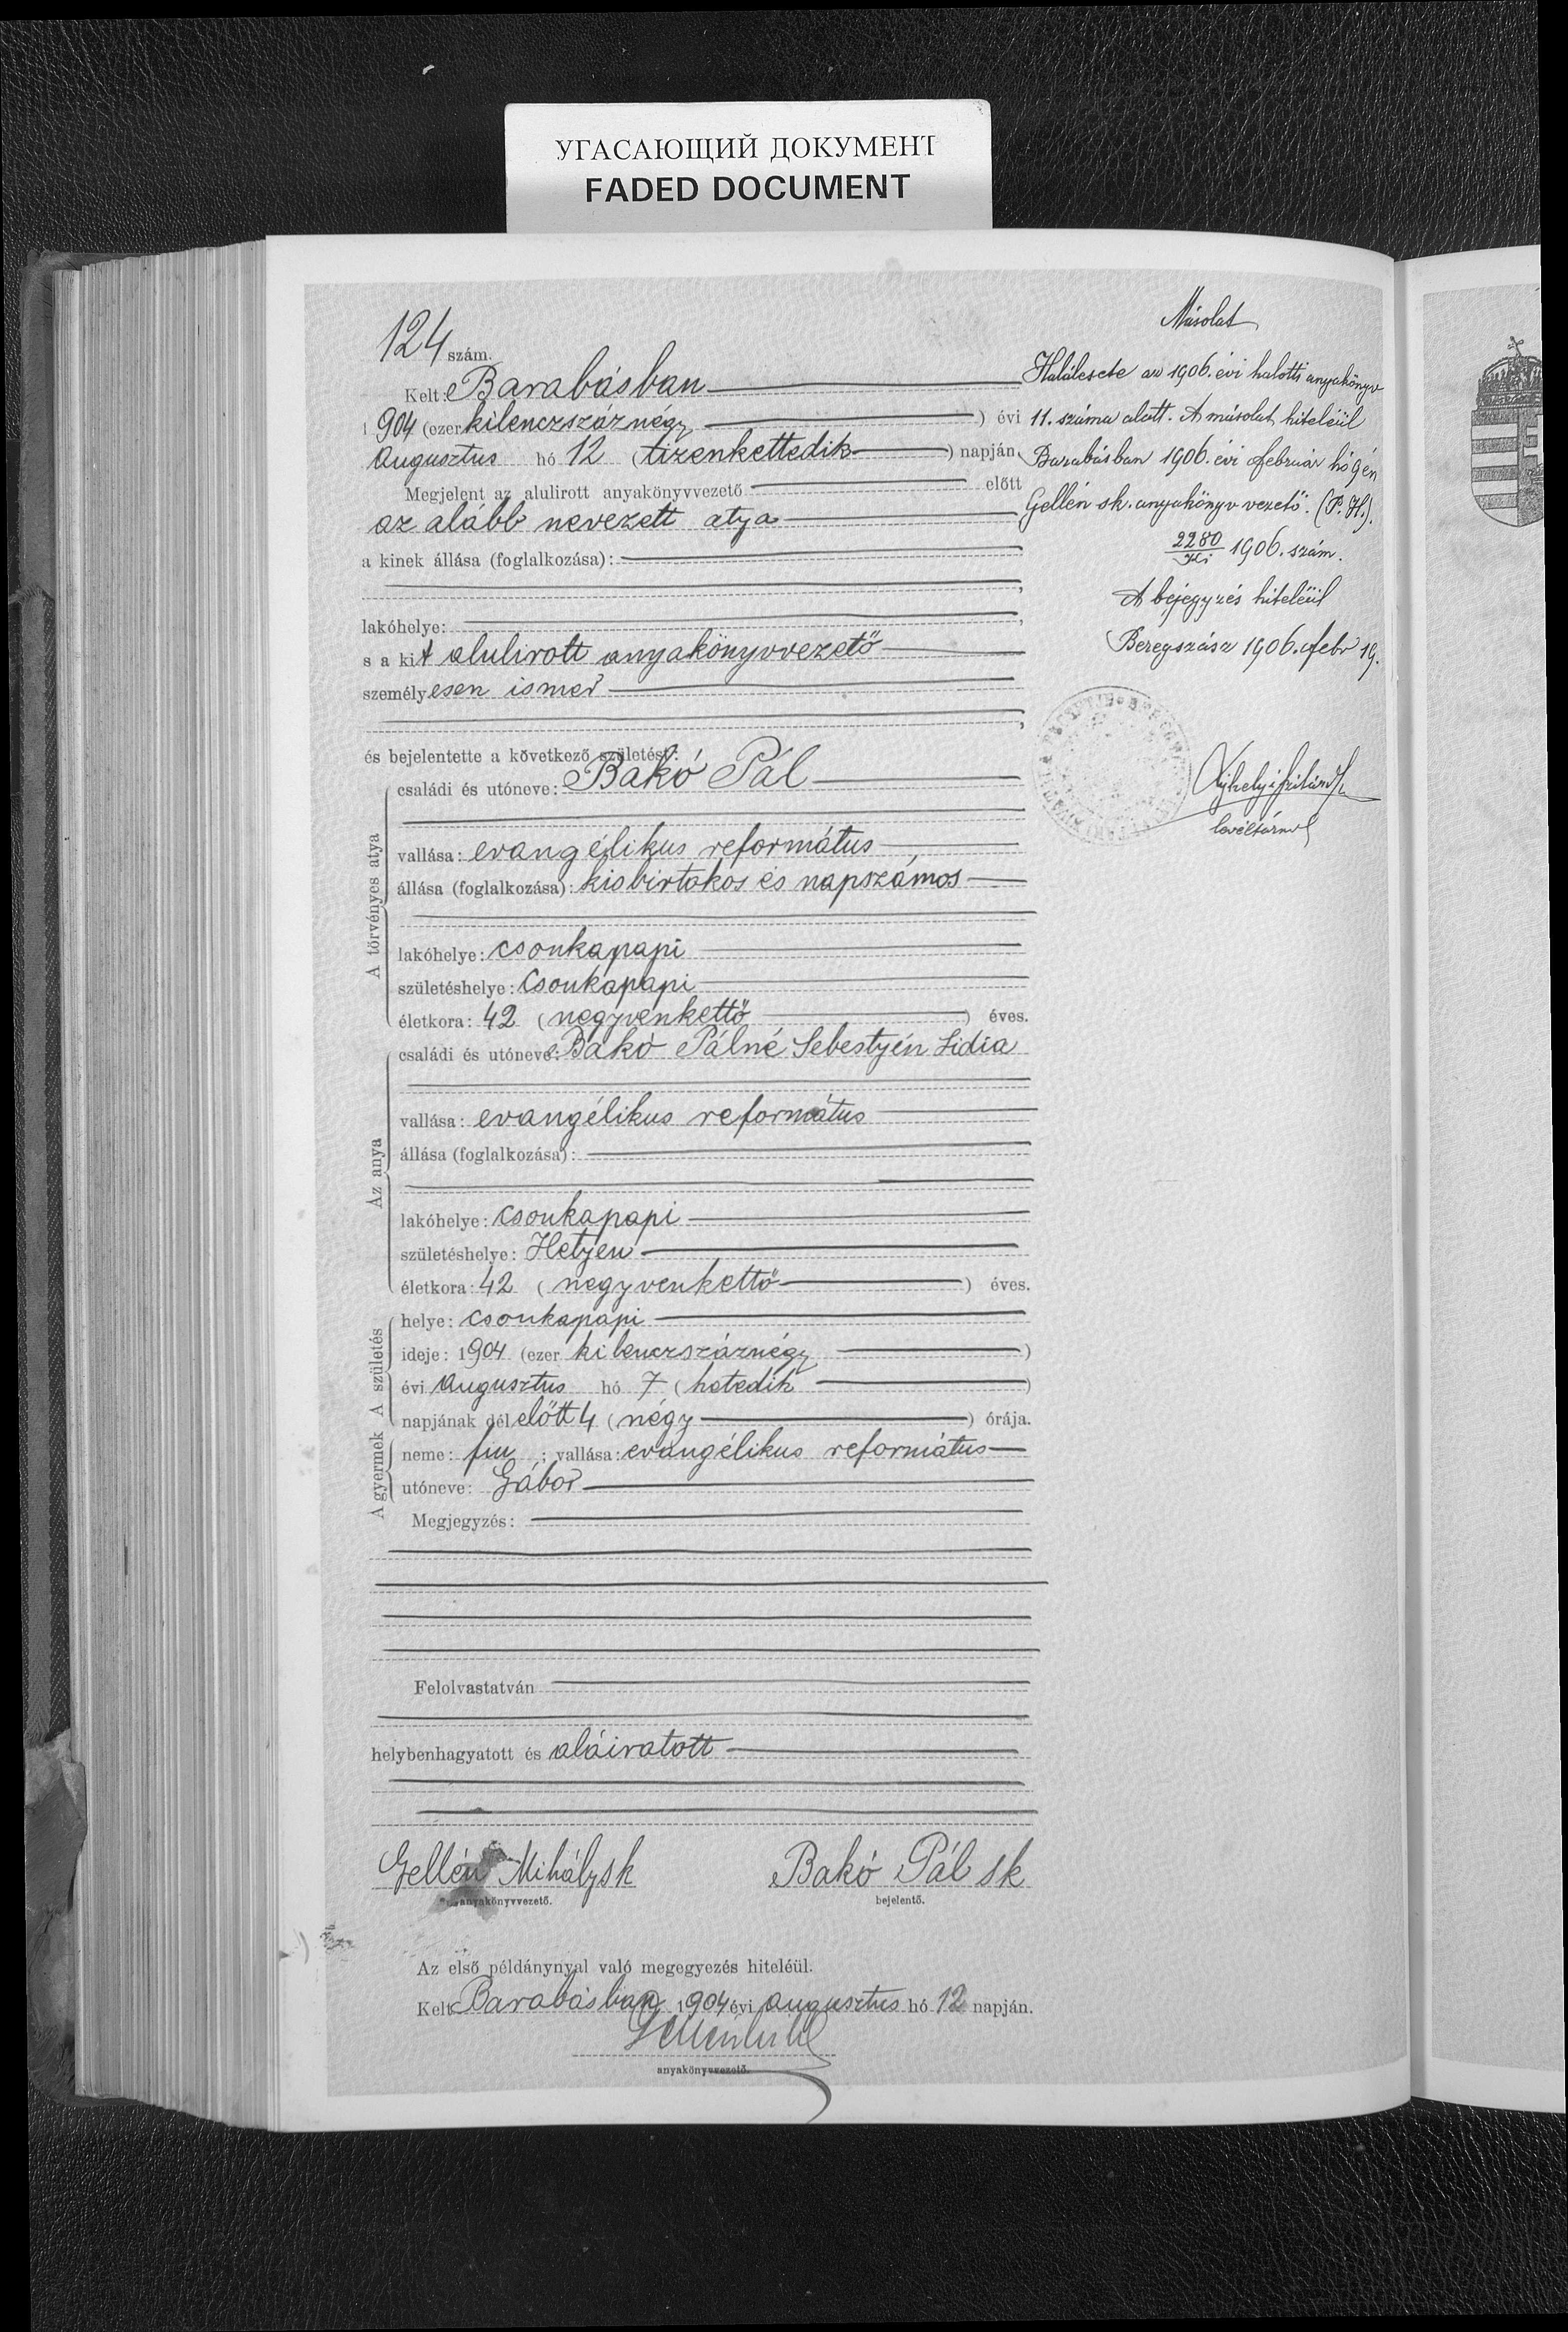 УГАСАЮЩИЙ ДОКУМЕНТ
FADED DOCUMENT
124 szám.
Kelt: Barabásban
1904 (ezer kilenczszáznégy) évi
Augusztus hó 12 (tizenkettedik) napján
Megjelent az alulirott anyakönyvvezető előtt
az alább nevezett atya
a kinek állása (foglalkozása):
lakóhelye:
s a kit alulirott anyakönyvvezető
személyesen ismer
és bejelentette a következő születést:
A törvényes atya
családi és utóneve: Bakó Pál
vallása: evangélikus református
állása (foglalkozása): kisbirtokos és napszámos
lakóhelye: Csonkapapi
születéshelye: Csonkapapi
életkora: 42 (negyvenkettő) éves.
Az anya
családi és utóneve: Bakó Pálné Sebestyén Lidia
vallása: evangélikus református
állása (foglalkozása):
lakóhelye: Csonkapapi
születéshelye: Hetyen
életkora: 42 (negyvenkettő) éves.
A születés
helye: Csonkapapi
ideje: 1904 (ezer kilenczszáznégy)
évi Augusztus hó 7 (hetedik)
napjának délelőtt 4 (négy) órája.
A gyermek
neme: fiu; vallása: evangélikus református
utóneve: Gábor
Megjegyzés:
Felolvastatván
helybenhagyatott és aláiratott
Gellén Mihály sk
anyakönyvvezető.
Bakó Pál sk
bejelentő.
Az első példánynyal való megegyezés hiteléül.
Kelt Barabásban, 1904 évi augusztus hó 12 napján.
anyakönyvvezető.
Másolat
Halálesete az 1906. évi halotti anyakönyv
11. száma alatt. A másolat hiteléül
Barabásban 1906. évi február hó 9én
Gellén sk. anyakönyv vezető. (P. H.).
2280
1906. szám.
A bejegyzés hiteléül
Beregszász 1906. febr 19.
levéltárnok